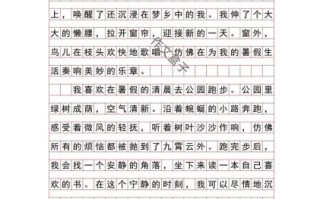 上，唤醒了还沉浸在梦乡中的我。我伸了个大
大的懒腰，拉开窗帘，迎接新的一天。窗外，
鸟儿在枝头欢快地歌唱，仿佛在为我的暑假生
活奏响美妙的乐章。
我喜欢在暑假的清晨去公园跑步。公园里
绿树成荫，空气清新。沿着蜿蜒的小路奔跑，
感受着微风的轻抚，听着树叶沙沙作响，仿佛
所有的烦恼都被抛到了九霄云外。跑完步后，
我会找一个安静的角落，坐下来读一本自己喜
欢的书。在这个宁静的时刻，我可以尽情地沉
作文盒子